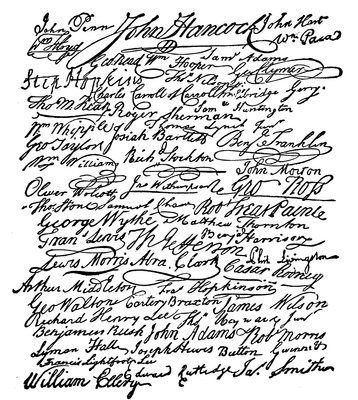 John Penn John Hancock John Hart
Wm Floyd Wm Paca
Geo Read Wm Hooper Saml Adams
Step Hopkins Thos Nelson jr Geo Clymer
Charles Carroll of Carrollton Elbridge Gerry
Tho M:Kean Roger Sherman Saml Huntington
Wm Whipple Thomas Lynch Junr
Geo Taylor Josiah Bartlett Benj Franklin
Wm Williams Richd Stockton John Morton
Oliver Wolcott Jno Witherspoon Geo Ross
Thos Stone Samuel Chase Robt Treat Paine
George Wythe Matthew Thornton
Frans Lewis Th Jefferson Benj Harrison
Lewis Morris Abra Clark Phil Livingston
Casar Rodney
Arthur Middleton Fras Hopkinson
Geo Walton Carter Braxton James Wilson
Richard Henry Lee Thos Heyward Junr
Benjamin Rush John Adams Robt Morris
Lyman Hall Joseph Hewes Button Gwinnett
Francis Lightfoot Lee
William Ellery Edward Rutledge Jas Smith